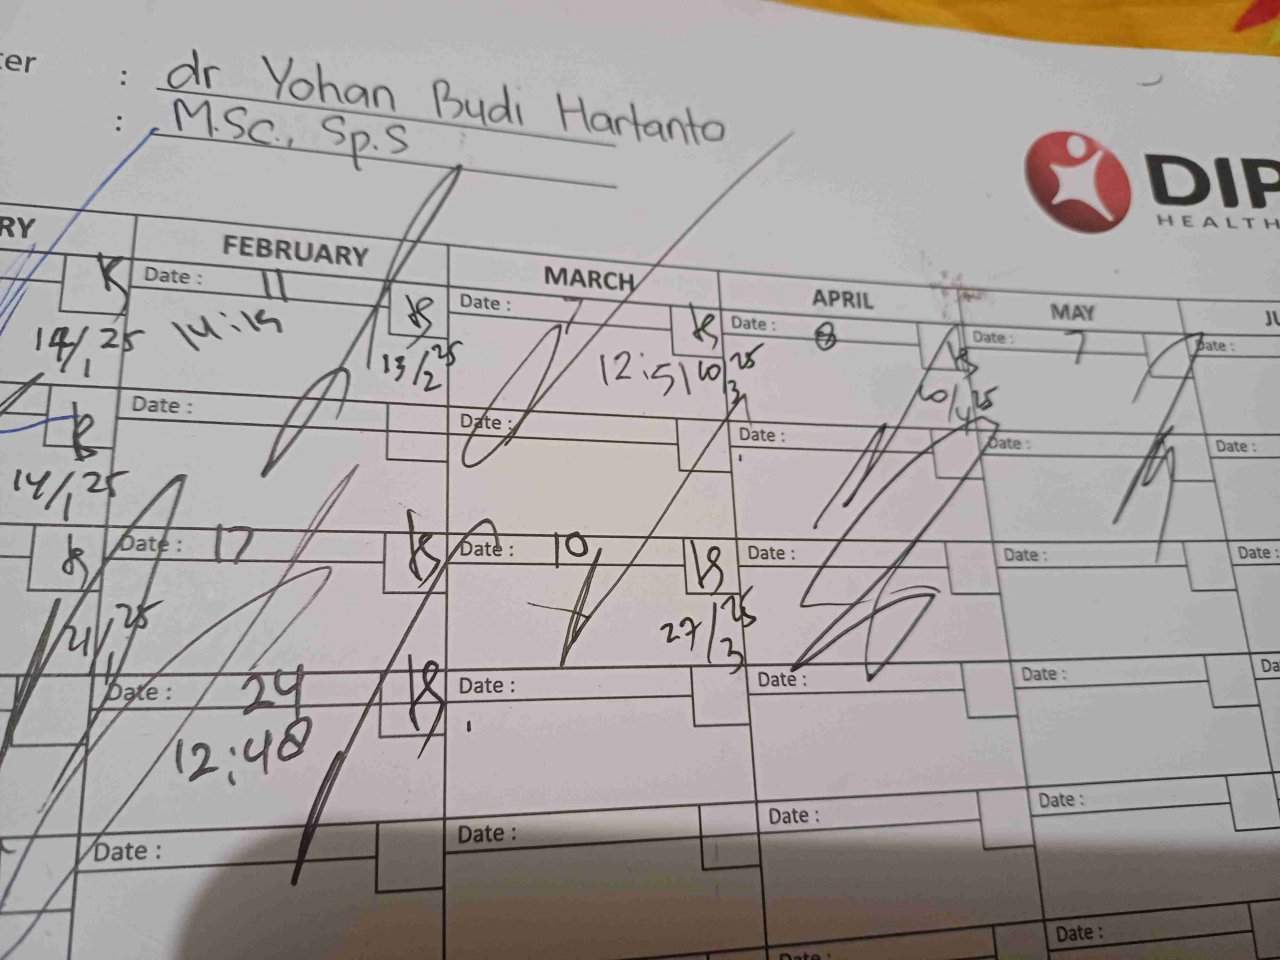 ter : dr Yohan Budi Hartanto
: M.Sc., Sp.S
DIP
HEALTH
RY FEBRUARY MARCH APRIL MAY JU
Date : 11 Date : 7 Date : 8 Date : 7 Date :
14/1 25 14:19 13/2 25 12:51 10/3 25 10/4 25
Date : Date : Date : Date : Date :
14/1 25
Date : 17 Date : 10 Date : Date : Date :
21/1 25 27/3 25
Date : 24 Date : Date : Date : Da
12:48
Date : Date : Date : Date :
Date : Date :